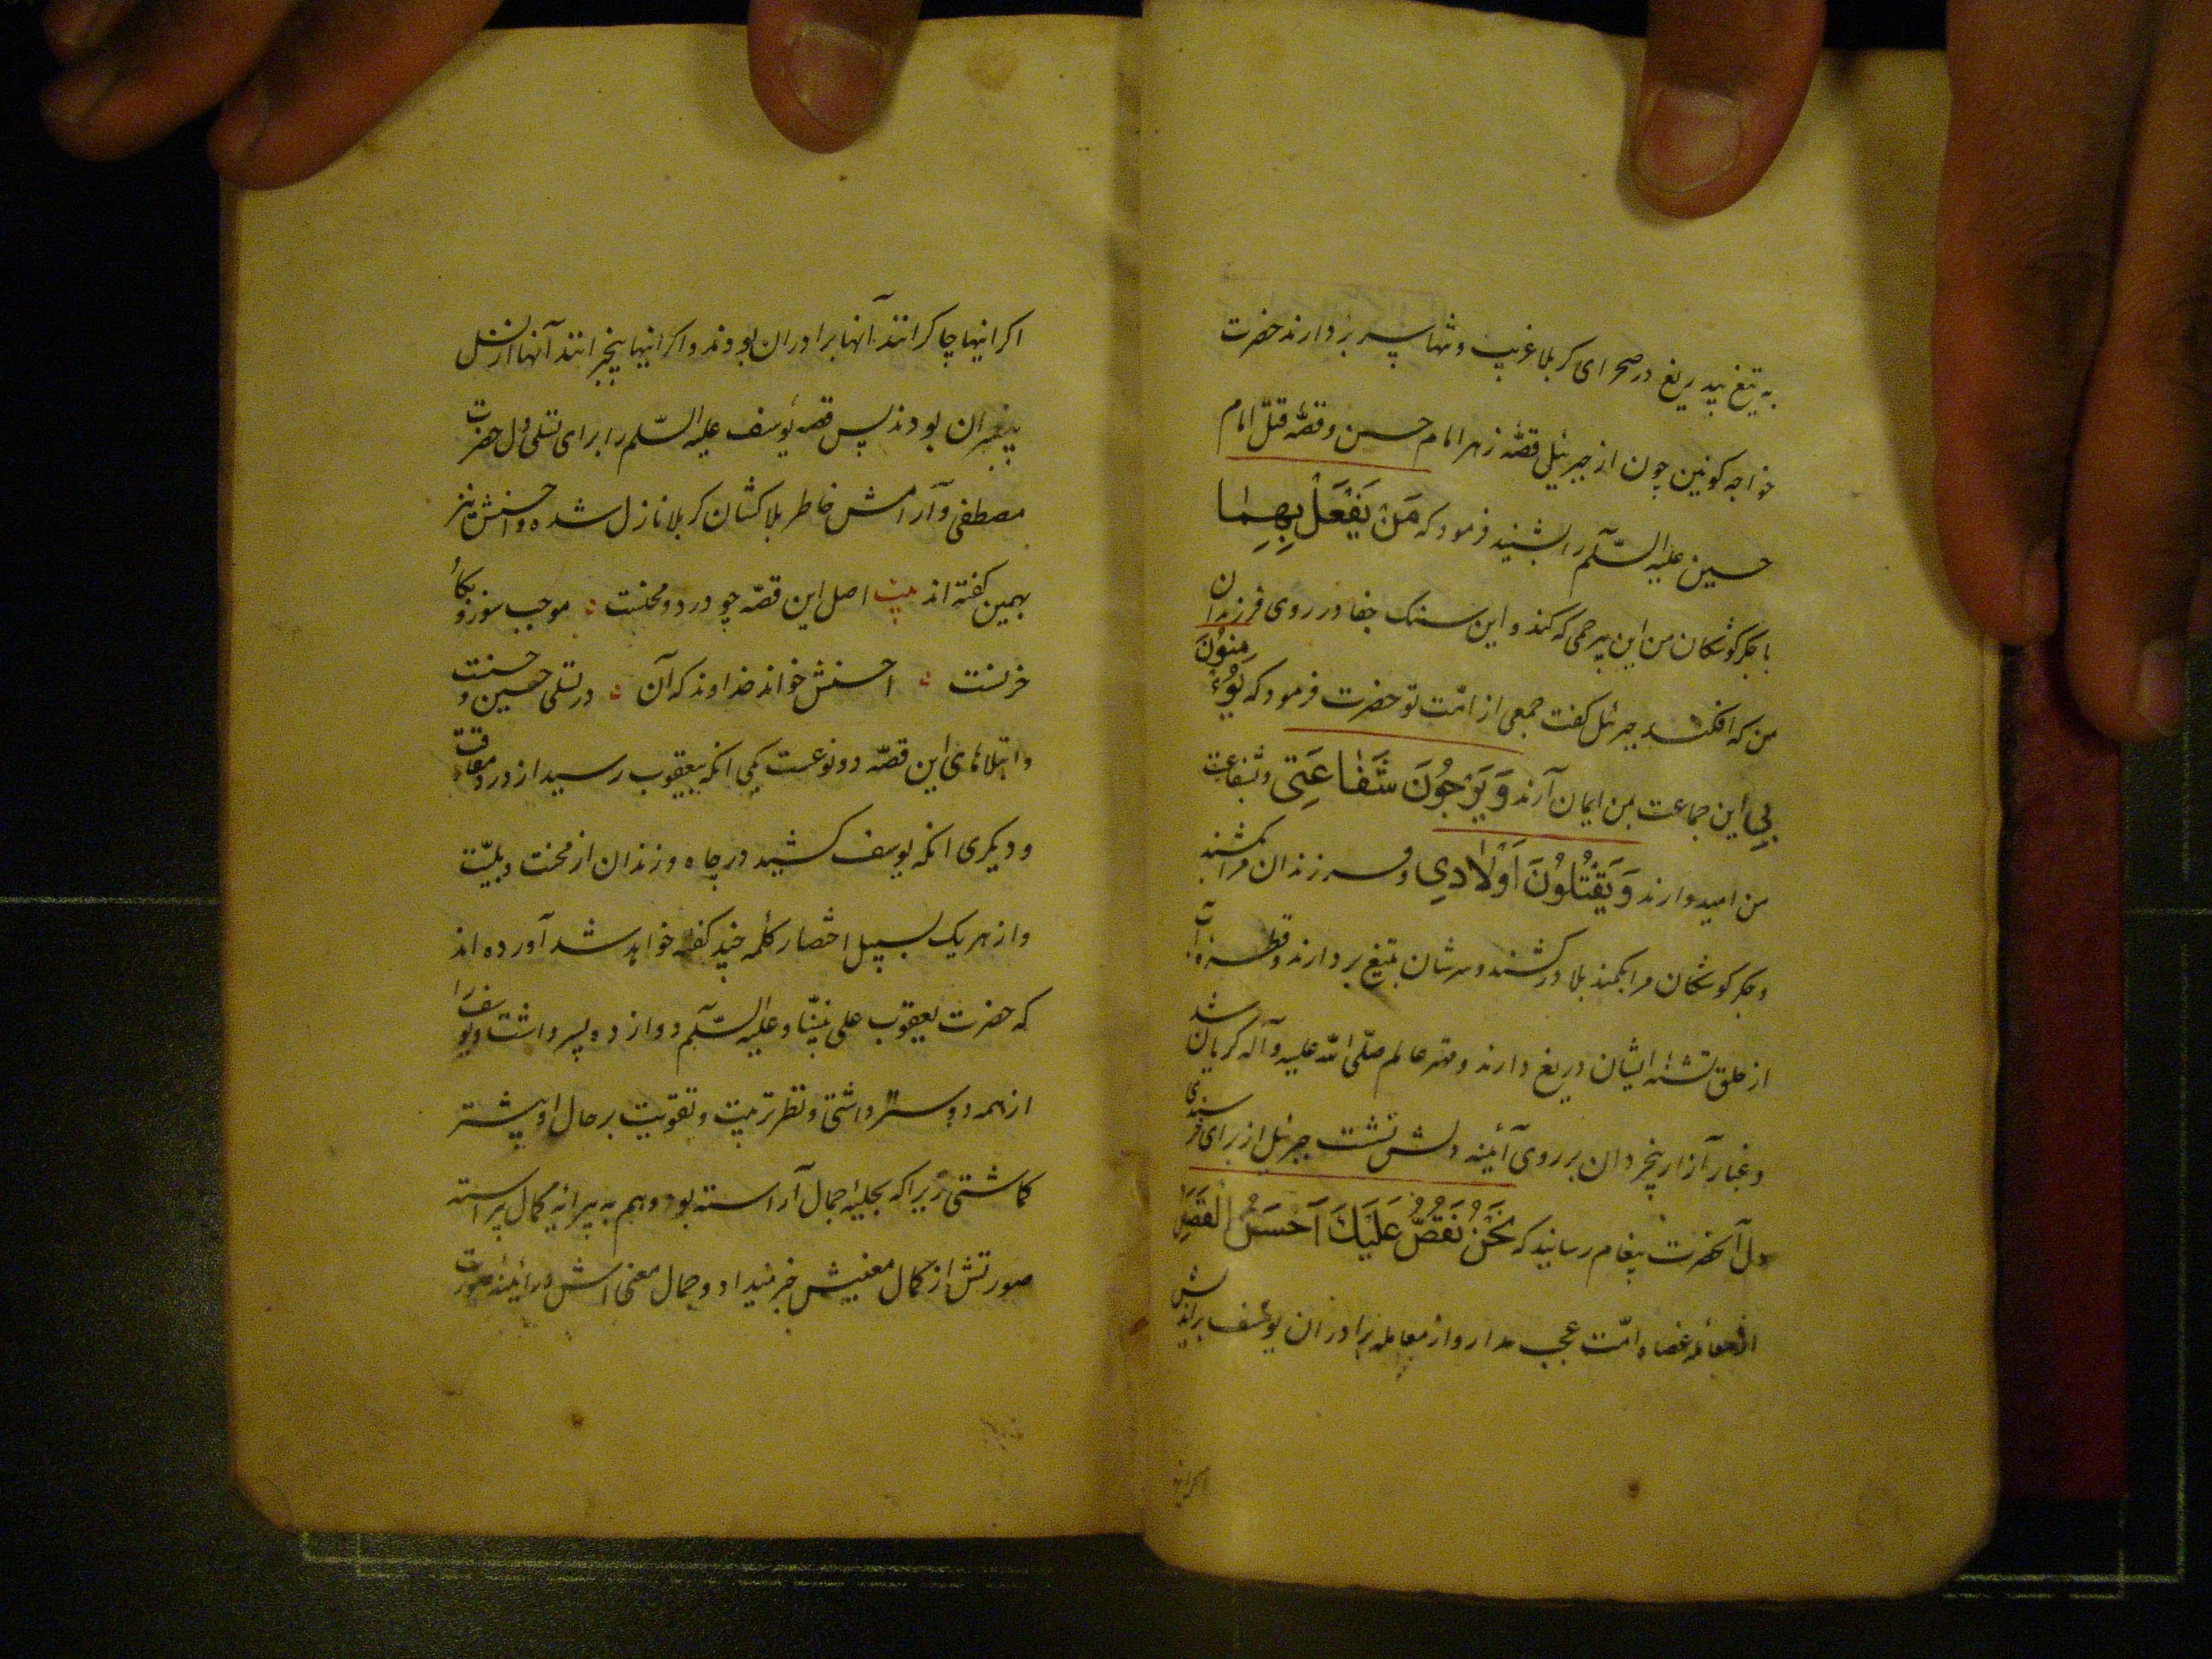 به تیغ بیدریغ در صحرای کربلا غریب و تنها سر بردارند حضرت
خواجه کونین چون از جبرئیل قصّه زهر امام حسن و قصّه قتل امام
حسین علیه السّلم را بشنید فرمود که مَنْ یَفْعَلْ بِهِمٰا
با جکرکوشکان من این بیرحمی که کند و این سنک جفا در روی فرزندان
من که افکند جبرئیل کفت جمعی از امّت تو حضرت فرمود که یُؤْمِنُونَ
بِی این جماعت بمن ایمان آرند وَ یَرْجُونَ شَفٰاعَتِی و شفاعت
من امیدوارند وَ یَقْتُلُونَ اَوْلٰادِی و فرزندان مرا بکشند
و جکرکوشکان مرا بکمند بلا درکشند و سرشان بتیغ بردارند و قطره آب
از حلق تشنه ایشان دریغ دارند و مهتر عالم صلّی الله علیه و آله کریان شد
و غبار آزار بیخردان بر روی آئینه دلش نشت جبرئیل از برای خرسندی
دل آنحضرت پیغام رسانید که نَحْنُ نَقُصُّ عَلَیْكَ اَحْسَنَ الْقَصَصِ
از معامله عصاه امّت عجب مدار و از معامله برادران یوسف براندیش
اکر اینها چاکرانند آنها برادران بودند و اکر اینها بیخبرانند آنها از نسل
پیغمبران بودند پس قصه یوسف علیه السّلم را برای تسلی دل حضرت
مصطفی و آرامش خاطر بلاکشان کربلا نازل شده و احسنش نیز
بهمین کفته اند بیت اصل این قصّه چو درد و محنت موجب سوز و بکاء
خزنست احسنش خواند خداوند که آن در تسلی حسین و حسنت
و ابتلائهای این قصّه دو نوعست یکی انکه بیعقوب رسید از درد مفارقت
و دیکری انکه یوسف کشید در چاه و زندان از محنت و بلیّت
و از هر یک بسبیل اختصار کلمه چند کفته خواهد شد آورده اند
که حضرت یعقوب علی نبیّنا و علیه السّلم دوازده پسر داشت و یوسف را
از همه دوستر داشتی و نظر تربیت و تقویت بر حال او بیشتر
کماشتی زیرا که بحلیه جمال آراسته بود و هم به پیرایه کمال پیراسته
صورتش از کمال معنیش خبر میداد و جمال معنی اش در آئینه صورت